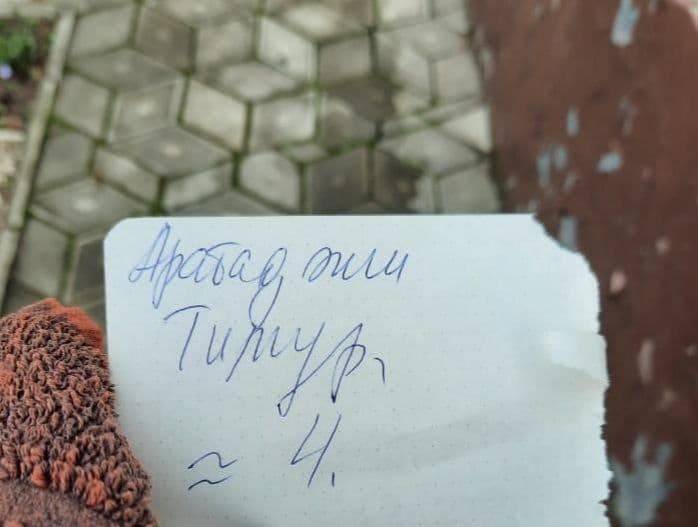 Арабаджи
Тимур.
≈ 4.